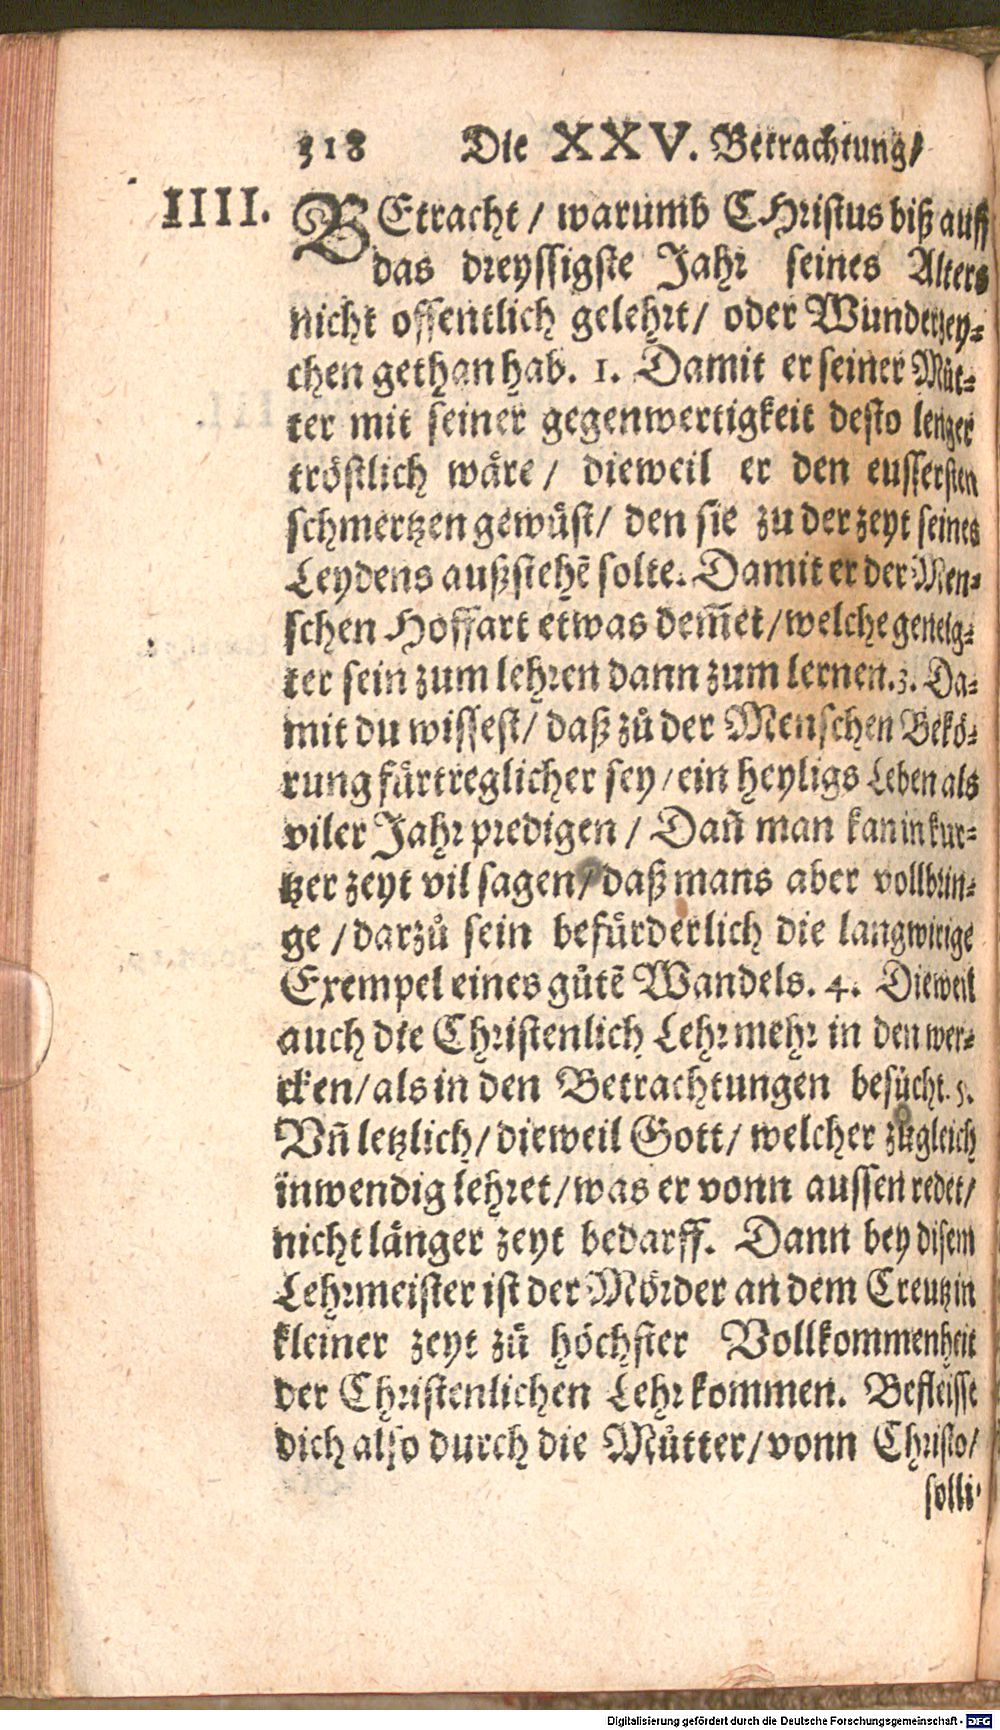 318 Die XXV. Betrachtung/
IIII. BEtracht / warumb CHristus biß auff
das dreyssigste Jahr seines Alters
nicht offentlich gelehrt/ oder Wunderzey-
chen gethan hab. 1. Damit er seiner Můt-
ter mit seiner gegenwertigkeit desto lenger
tröstlich wäre / dieweil er den eussersten
schmertzen gewüst/ den sie zu der zeyt seines
Leydens außstehẽ solte. Damit er der Men-
schen Hoffart etwas dem̃et/welche geneig-
ter sein zum lehren dann zum lernen.3. Da-
mit du wissest/ daß zů der Menschen Bekö-
rung fürtreglicher sey/ein heyligs Leben als
viler Jahr predigen / Dañ man kan in kur-
tzer zeyt vil sagen/ daß mans aber vollbrin-
ge /darzů sein befürderlich die langwirige
Exempel eines gůtẽ Wandels. 4. Dieweil
auch die Christenlich Lehr mehr in den wer-
cken/als in den Betrachtungen besůcht. 5.
Vñ letzlich/dieweil Gott/ welcher zůgleich
inwendig lehret/was er vonn aussen redet/
nicht länger zeyt bedarff. Dann bey disem
Lehrmeister ist der Mörder an dem Creutz in
kleiner zeyt zů höchster Vollkommenheit
der Christenlichen Lehr kommen. Befleisse
dich also durch die Můtter/vonn Christo/
solli-
Digitalisierung gefördert durch die Deutsche Forschungsgemeinschaft - DFG